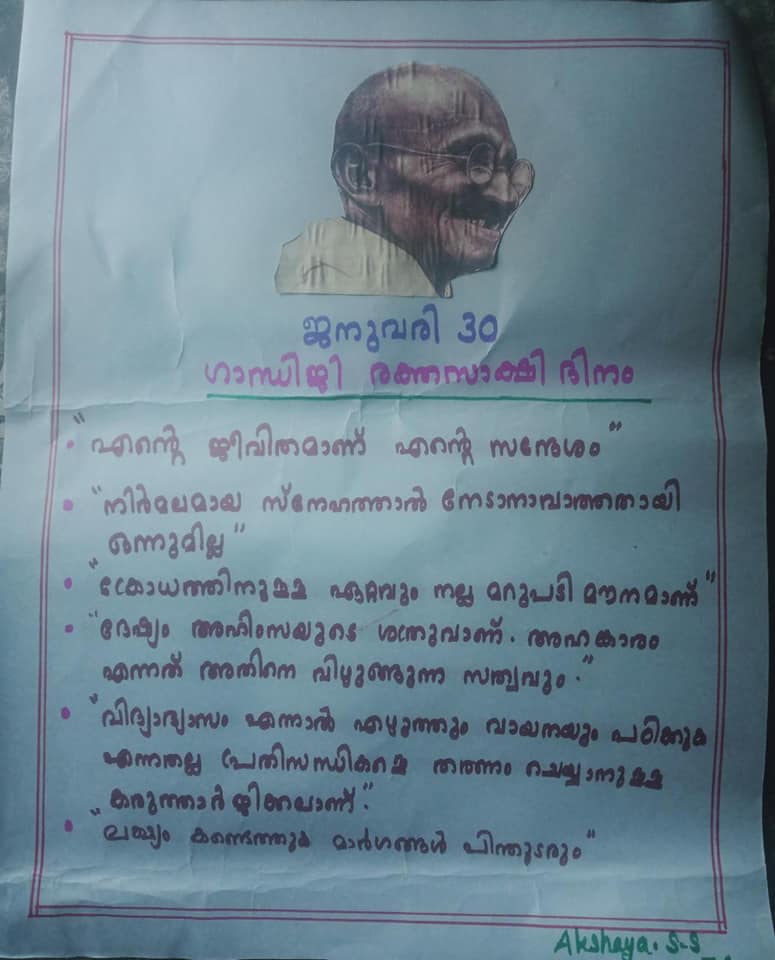 ജനുവരി 30
ഗാന്ധിജി രക്തസാക്ഷി ദിനം
"എന്റെ ജീവിതമാണ് എന്റെ സന്ദേശം"
"നിർമലമായ സ്നേഹത്താൽ നേടാനാവാത്തതായി
ഒന്നുമില്ല"
"ക്രോധത്തിനുള്ള ഏറ്റവും നല്ല മറുപടി മൗനമാണ്"
"ദേഷ്യം അഹിംസയുടെ ശത്രുവാണ്. അഹങ്കാരം
എന്നത് അതിനെ വിഴുങ്ങുന്ന സത്വവും."
"വിദ്യാഭ്യാസം എന്നാൽ എഴുത്തും വായനയും പഠിക്കുക
എന്നതല്ല പ്രതിസന്ധികളെ തരണം ചെയ്യാനുള്ള
കരുത്താർജ്ജിക്കലാണ്."
"ലക്ഷ്യം കണ്ടെത്തുക മാർഗങ്ങൾ പിന്തുടരും"
Akshaya. S-S